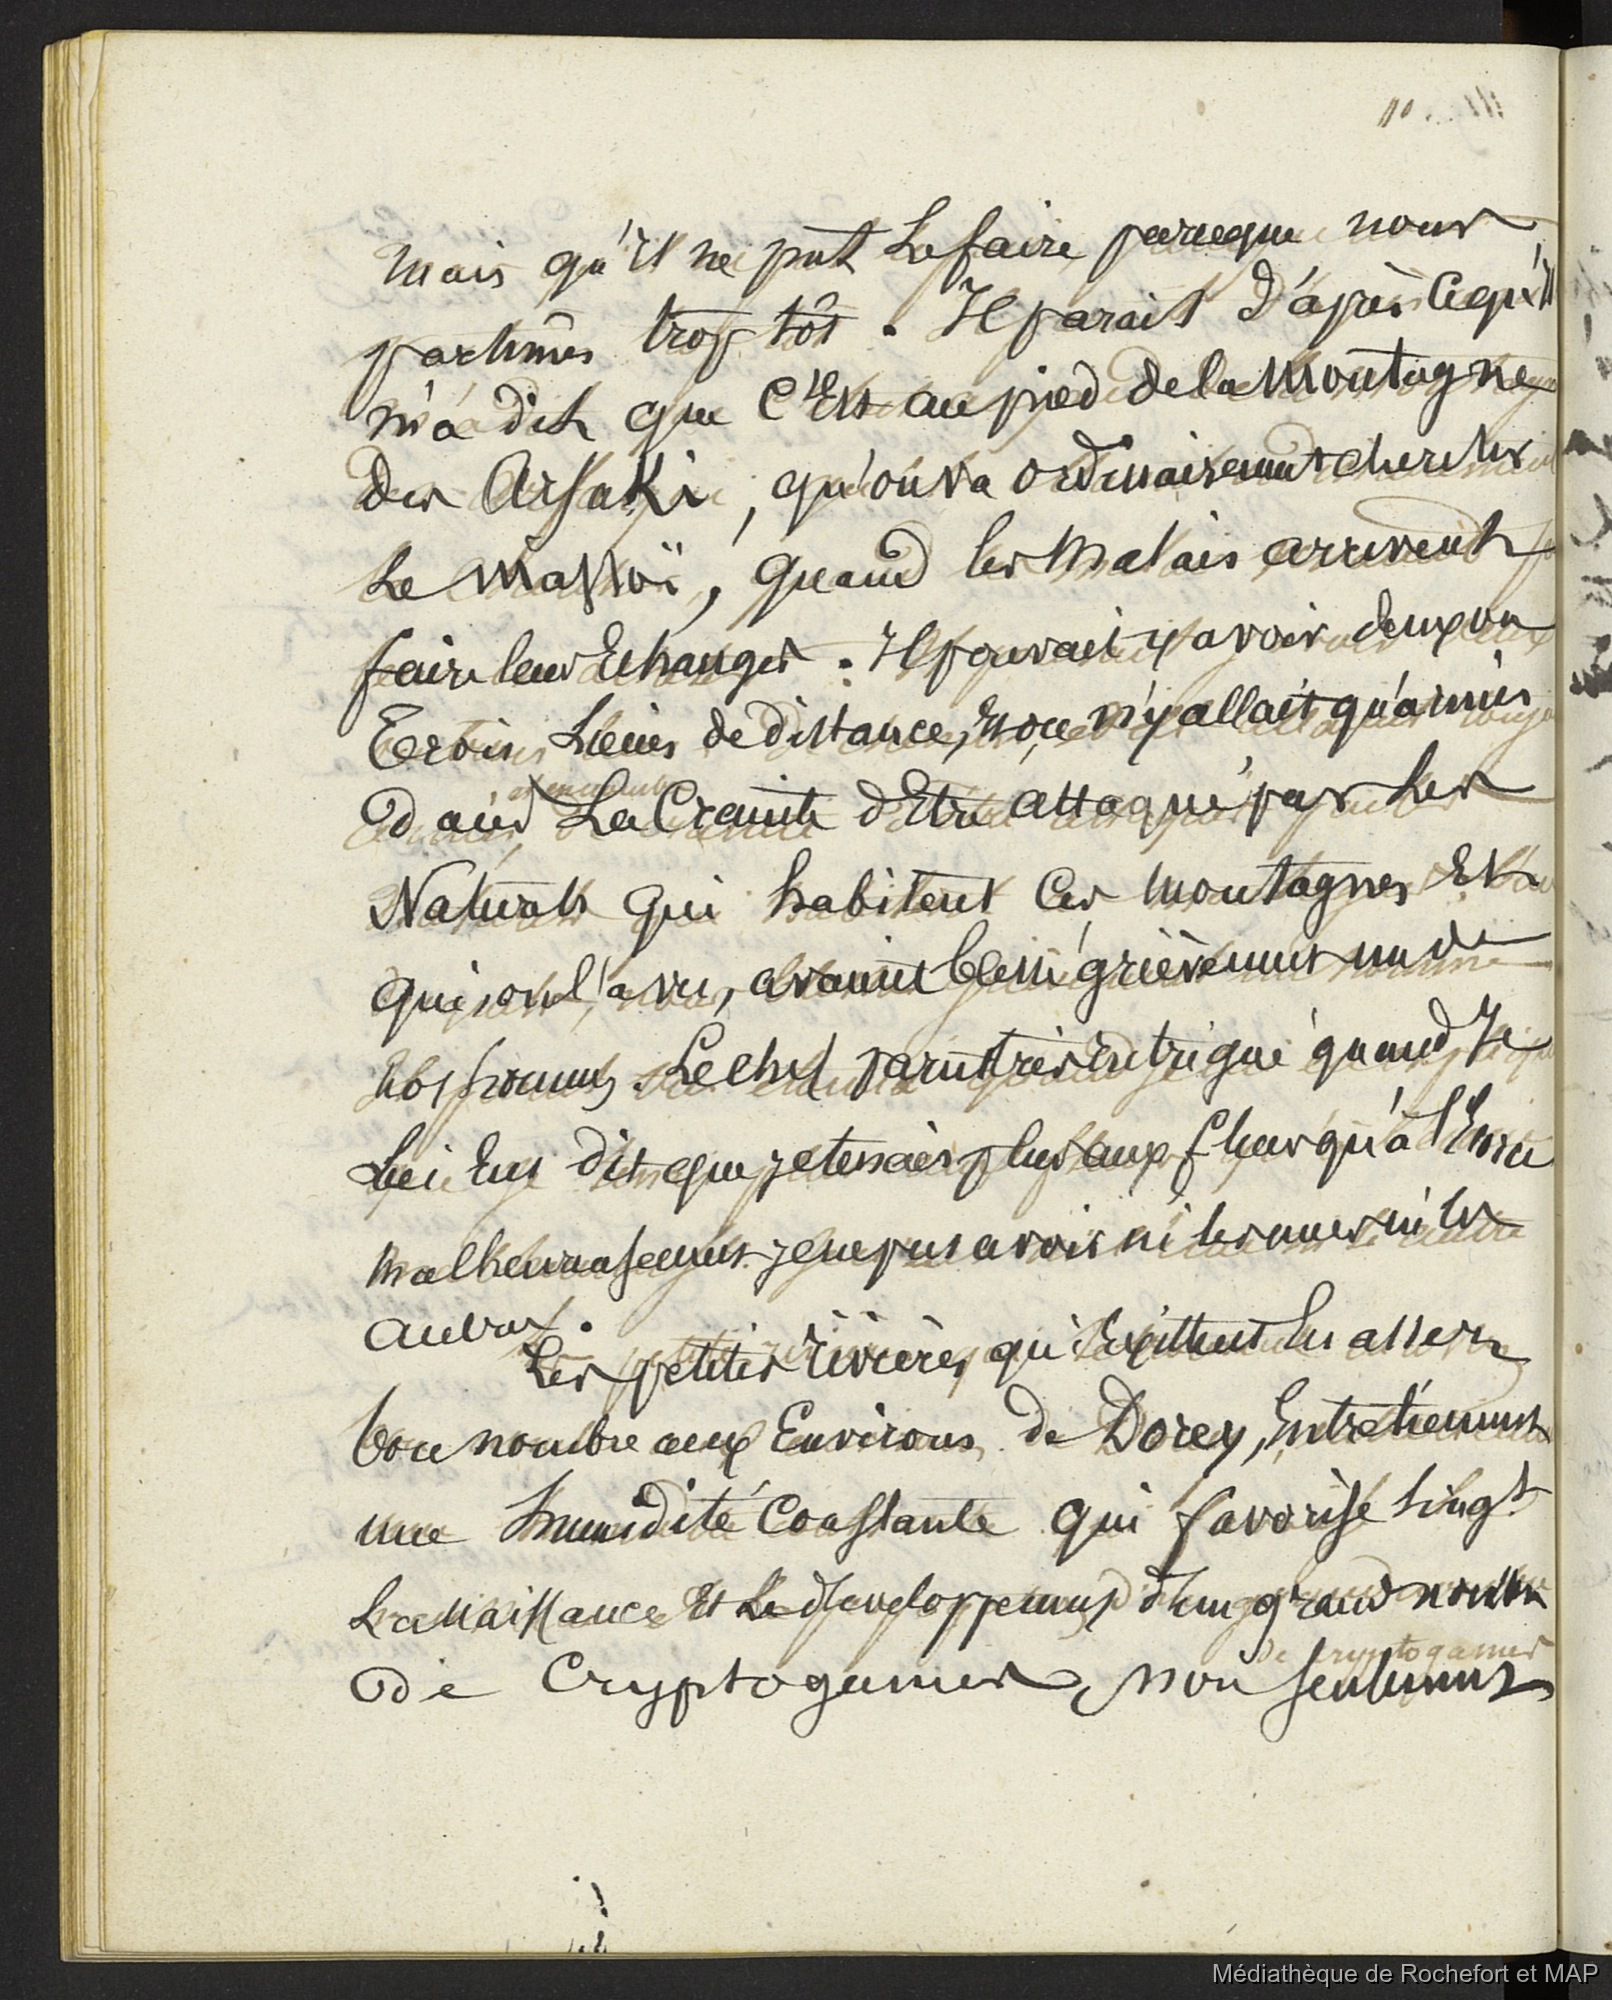 110
mais qu'il ne put le faire parceque nous
partimes trop tôt. Il parait d'après ce qu'il
m'a dit que c'est au pied de la montagne
des Arfaki, qu'on va ordinairement chercher
le Massoï, quand les Malais arrivent
faire leur Echanges. Il pouvait y avoir deux ou
trois lieues de distance, et on n'y allait qu'armés
dans la Crainte d'Etre attaqué par les
Naturels qui habitent ces montagnes Et
qui, on l'a vu, avaient blessé grièvement un de
nos hommes. Le chef parut très intrigué quand Je
lui Eus dit que je tenais plus aux fleurs qu'à l'Ecorce
malheureusement je ne pus avoir ni les unes ni les
autres.
Les petites rivières qui Existent En assez
bon nombre aux Environs de Dorey, Entretiennent
une humidité Constante qui favorise singt
la naissance Et le développement d'un grand nombre
de Cryptogames
de Cryptogames, non seulement
Médiathèque de Rochefort et MAP